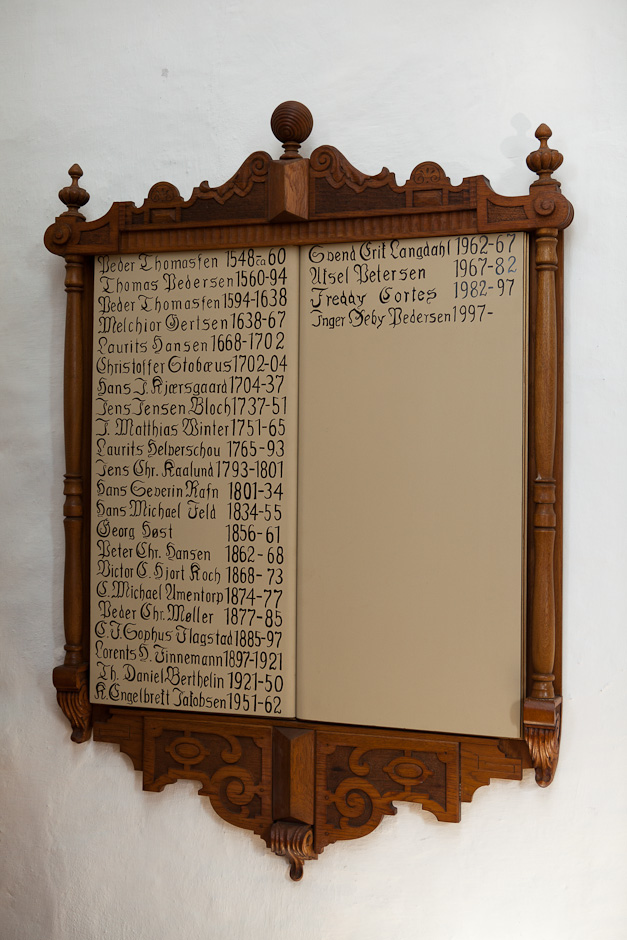 Peder Thomassen 1548 ca 60
Thomas Pedersen 1560-94
Peder Thomassen 1594-1638
Melchior Gertsen 1638-67
Laurits Hansen 1668-1702
Christoffer Stobæus 1702-04
Hans J. Kjærsgaard 1704-37
Jens Jensen Bloch 1737-51
J. Matthias Winter 1751-65
Laurits Helverschou 1765-93
Jens Chr. Kaalund 1793-1801
Hans Severin Rafn 1801-34
Hans Michael Feld 1834-55
Georg Høst 1856-61
Peter Chr. Hansen 1862-68
Victor C. Hjort Koch 1868-73
C. Michael Amentorp 1874-77
Peder Chr. Møller 1877-85
C. F. Sophus Flagstad 1885-97
Lorents H. Finnemann 1897-1921
Th. Daniel Berthelin 1921-50
K. Engelbrett Jakobsen 1951-62
Svend Erik Langdahl 1962-67
Aksel Petersen 1967-82
Freddy Cortes 1982-97
Inger Heby Pedersen 1997-